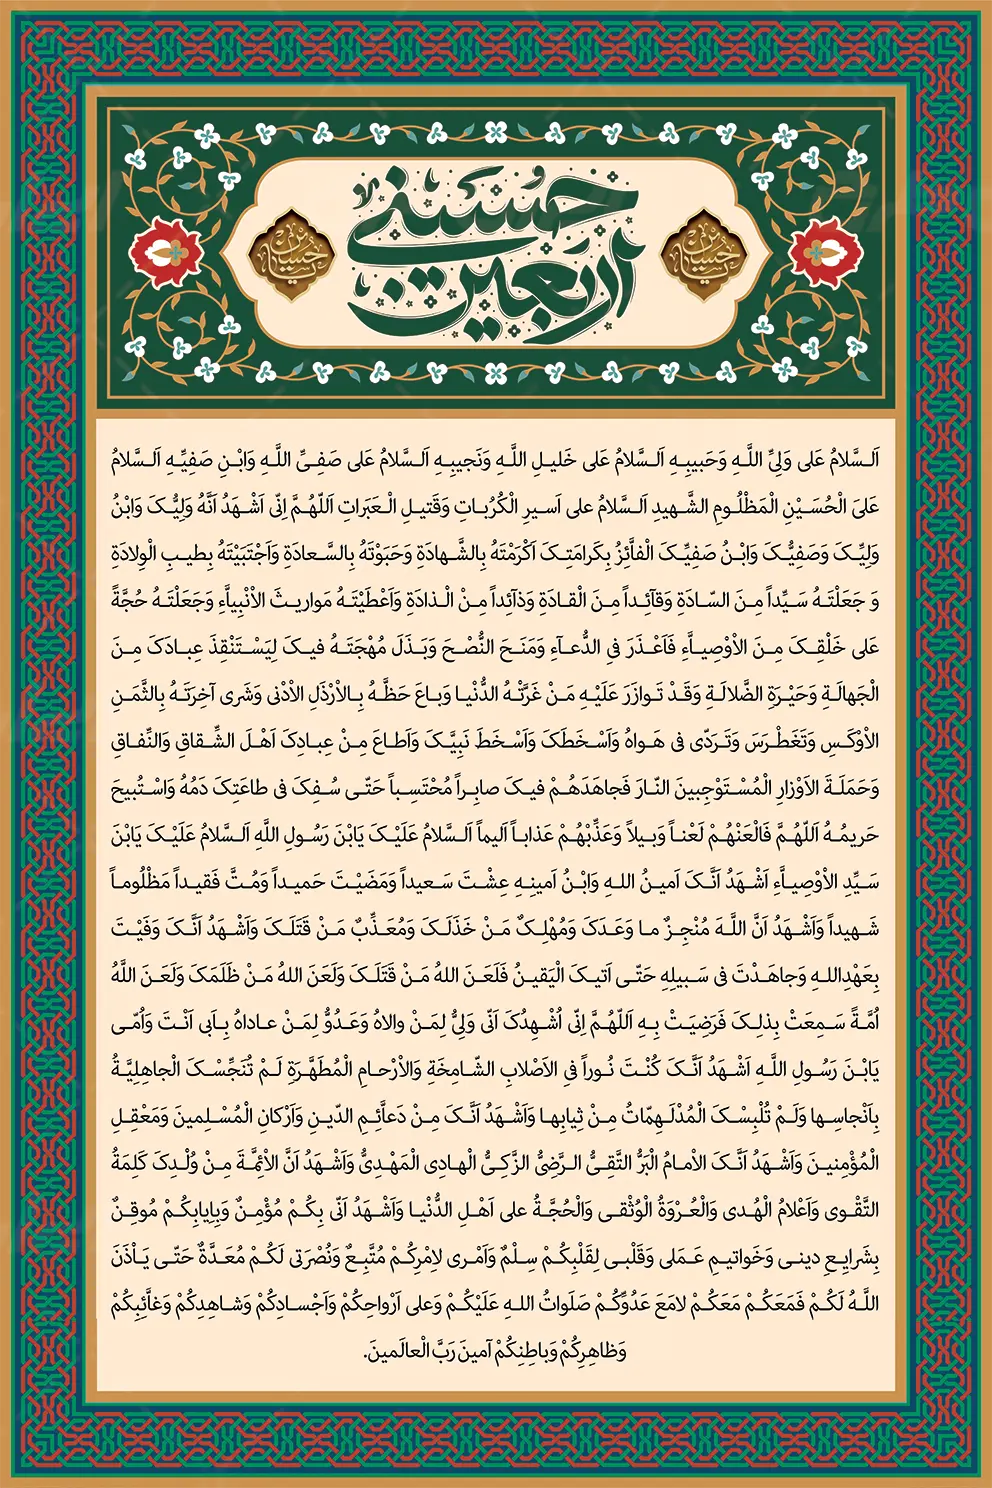 اربعین حسینی
یا حسین بن علی
یا حسین بن علی
اَلسَّلامُ عَلی وَلِیِّ اللَّهِ وَحَبیبِهِ اَلسَّلامُ عَلی خَلیلِ اللَّهِ وَنَجیبِهِ اَلسَّلامُ عَلی صَفِیِّ اللَّهِ وَابْنِ صَفِیِّهِ اَلسَّلامُ
عَلیَ الْحُسَیْنِ الْمَظْلُومِ الشَّهیدِ اَلسَّلامُ علی اَسیرِ الْکُرُباتِ وَقَتیلِ الْعَبَراتِ اَللّهُمَّ اِنّی اَشْهَدُ اَنَّهُ وَلِیُّکَ وَابْنُ
وَلِیِّکَ وَصَفِیُّکَ وَابْنُ صَفِیِّکَ الْفاَّئِزُ بِکَرامَتِکَ اَکْرَمْتَهُ بِالشَّهادَةِ وَحَبَوْتَهُ بِالسَّعادَةِ وَاَجْتَبَیْتَهُ بِطیبِ الْوِلادَةِ
وَ جَعَلْتَهُ سَیِّداً مِنَ السّادَةِ وَقآئِداً مِنَ الْقادَةِ وَذآئِداً مِنْ الْذادَةِ وَاَعْطَیْتَهُ مَواریثَ الاْنْبِیاَّءِ وَجَعَلْتَهُ حُجَّةً
عَلی خَلْقِکَ مِنَ الاْوْصِیاَّءِ فَاَعْذَرَ فیِ الدُّعآءِ وَمَنَحَ النُّصْحَ وَبَذَلَ مُهْجَتَهُ فیکَ لِیَسْتَنْقِذَ عِبادَکَ مِنَ
الْجَهالَةِ وَحَیْرَةِ الضَّلالَةِ وَقَدْ تَوازَرَ عَلَیْهِ مَنْ غَرَّتْهُ الدُّنْیا وَباعَ حَظَّهُ بِالاْرْذَلِ الاْدْنی وَشَری آخِرَتَهُ بِالثَّمَنِ
الاْوْکَسِ وَتَغَطْرَسَ وَتَرَدّی فی هَواهُ وَاَسْخَطَکَ وَاَسْخَطَ نَبِیَّکَ وَاَطاعَ مِنْ عِبادِکَ اَهْلَ الشِّقاقِ وَالنِّفاقِ
وَحَمَلَةَ الاَوْزارِ الْمُسْتَوْجِبینَ النّارَ فَجاهَدَهُمْ فیکَ صابِراً مُحْتَسِباً حَتّی سُفِکَ فی طاعَتِکَ دَمُهُ وَاسْتُبیحَ
حَریمُهُ اَللّهُمَّ فَالْعَنْهُمْ لَعْناً وَبیلاً وَعَذِّبْهُمْ عَذاباً اَلیماً اَلسَّلامُ عَلَیْکَ یَابْنَ رَسُولِ اللَّهِ اَلسَّلامُ عَلَیْکَ یَابْنَ
سَیِّدِ الاْوْصِیاَّءِ اَشْهَدُ اَنَّکَ اَمینُ اللهِ وَابْنُ اَمینِهِ عِشْتَ سَعیداً وَمَضَیْتَ حَمیداً وَمُتَّ فَقیداً مَظْلُوماً
شَهیداً وَاَشْهَدُ اَنَّ اللَّهَ مُنْجِزٌ ما وَعَدَکَ وَمُهْلِکٌ مَنْ خَذَلَکَ وَمُعَذِّبٌ مَنْ قَتَلَکَ وَاَشْهَدُ اَنَّکَ وَفَیْتَ
بِعَهْدِاللهِ وَجاهَدْتَ فی سَبیلِهِ حَتّی اَتیکَ الْیَقینُ فَلَعَنَ اللهُ مَنْ قَتَلَکَ وَلَعَنَ اللهُ مَنْ ظَلَمَکَ وَلَعَنَ اللَّهُ
اُمَّةً سَمِعَتْ بِذلِکَ فَرَضِیَتْ بِهِ اَللّهُمَّ اِنّی اُشْهِدُکَ اَنّی وَلِیٌّ لِمَنْ والاهُ وَعَدُوٌّ لِمَنْ عاداهُ بِاَبی اَنْتَ وَاُمّی
یَابْنَ رَسُولِ اللَّهِ اَشْهَدُ اَنَّکَ کُنْتَ نُوراً فیِ الاَصْلابِ الشّامِخَةِ وَالاْرْحامِ الْمُطَهَّرَةِ لَمْ تُنَجِّسْکَ الْجاهِلِیَّةُ
بِاَنْجاسِها وَلَمْ تُلْبِسْکَ الْمُدْلَهِمّاتُ مِنْ ثِیابِها وَاَشْهَدُ اَنَّکَ مِنْ دَعاَّئِمِ الدّینِ وَاَرْکانِ الْمُسْلِمینَ وَمَعْقِلِ
الْمُؤْمِنینَ وَاَشْهَدُ اَنَّکَ الاْمامُ الْبَرُّ التَّقِیُّ الرَّضِیُّ الزَّکِیُّ الْهادِی الْمَهْدِیُّ وَاَشْهَدُ اَنَّ الاْئِمَّةَ مِنْ وُلْدِکَ کَلِمَةُ
التَّقْوی وَاَعْلامُ الْهُدی وَالْعُرْوَةُ الْوُثْقی وَالْحُجَّةُ علی اَهْلِ الدُّنْیا وَاَشْهَدُ اَنّی بِکُمْ مُؤْمِنٌ وَبِاِیابِکُمْ مُوقِنٌ
بِشَرایِعِ دینی وَخَواتیمِ عَمَلی وَقَلْبی لِقَلْبِکُمْ سِلْمٌ وَاَمْری لاِمْرِکُمْ مُتَّبِعٌ وَنُصْرَتی لَکُمْ مُعَدَّةٌ حَتّی یَاْذَنَ
اللَّهُ لَکُمْ فَمَعَکُمْ مَعَکُمْ لامَعَ عَدُوِّکُمْ صَلَواتُ اللهِ عَلَیْکُمْ وَعلی اَرْواحِکُمْ وَاَجْسادِکُمْ وَشاهِدِکُمْ وَغاَّئِبِکُمْ
وَظاهِرِکُمْ وَباطِنِکُمْ آمینَ رَبَّ الْعالَمینَ.